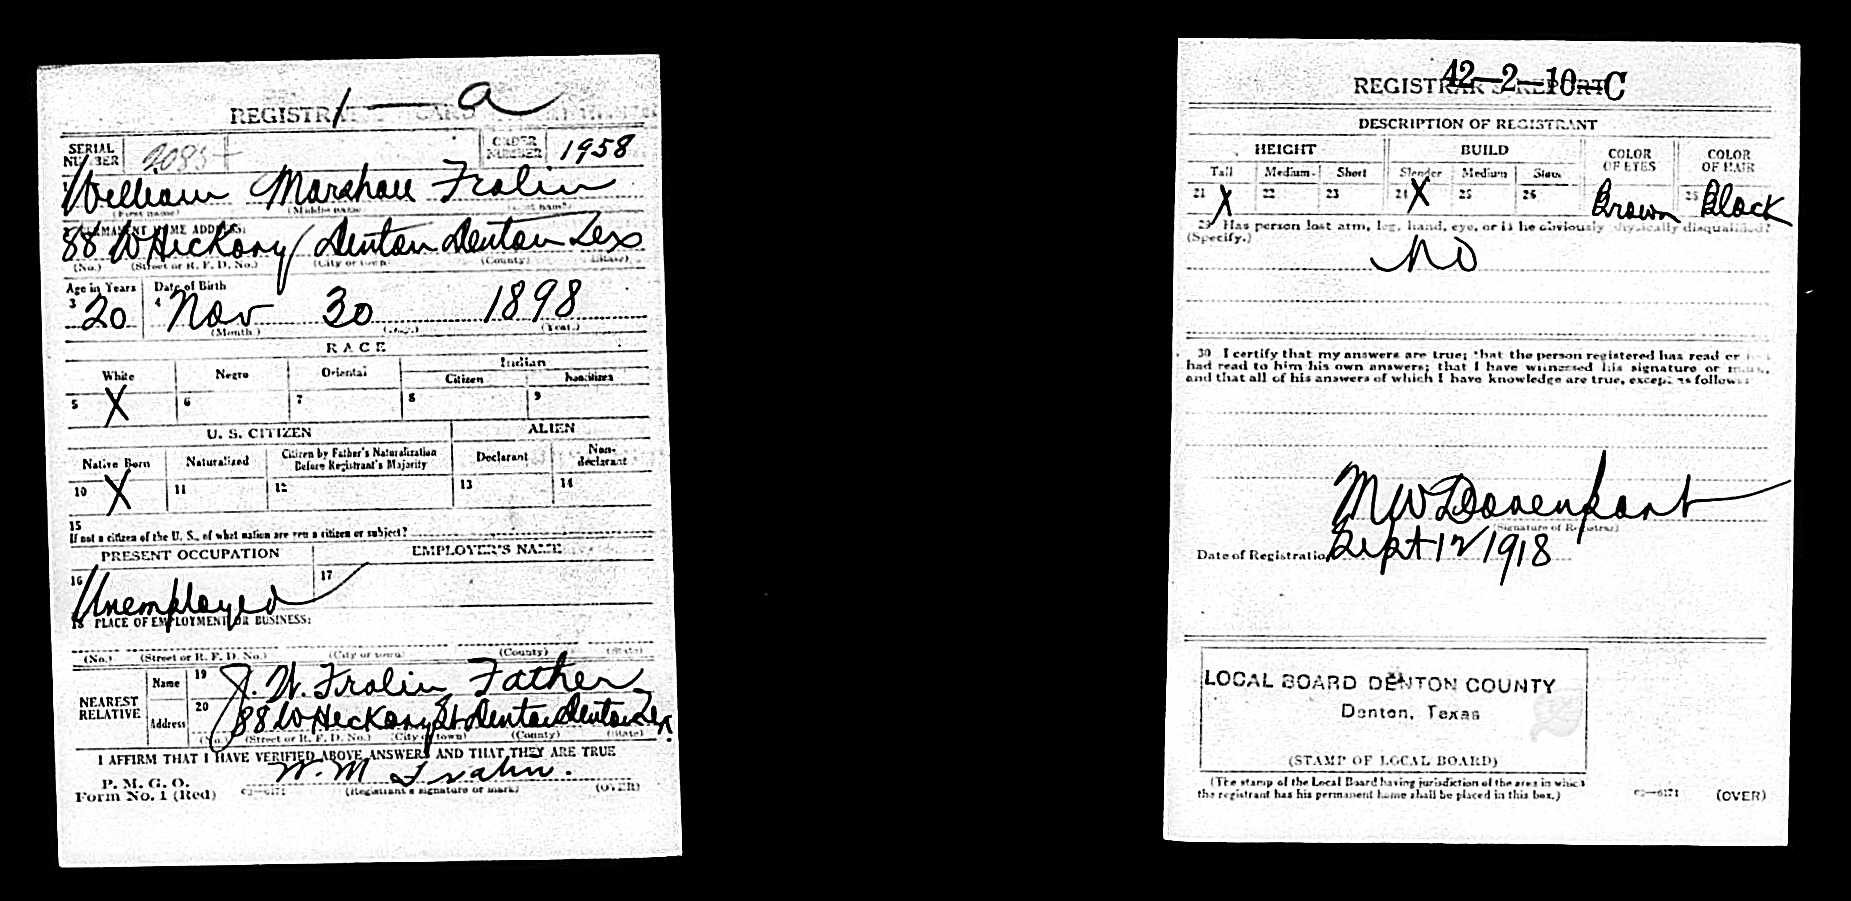 1 — a
REGISTRAR CARD
SERIAL NUMBER 2085 ORDER NUMBER 1958
William Marshall Fralin
(First name) (Middle name) (Last name)
2 PERMANENT HOME ADDRESS:
88 W Hickory Denton Denton Tex
(No.) (Street or R. F. D. No.) (City or town) (County) (State)
Age in Years Date of Birth
3 20 4 Nov 30 1898
(Month.) (Day.) (Year.)
RACE
White Negro Oriental Indian
Citizen Noncitizen
5 X 6 7 8 9
U. S. CITIZEN ALIEN
Native Born Naturalized Citizen by Father's Naturalization Before Registrant's Majority Declarant Non-declarant
10 X 11 12 13 14
15
If not a citizen of the U. S., of what nation are you a citizen or subject?
PRESENT OCCUPATION EMPLOYER'S NAME
16 Unemployed 17
18 PLACE OF EMPLOYMENT OR BUSINESS:
(No.) (Street or R. F. D. No.) (City or town) (County) (State)
NEAREST RELATIVE Name 19 J. W. Fralin Father
Address 20 88 W Hickory St Denton Denton Tex.
(No.) (Street or R. F. D. No.) (City or town) (County) (State)
I AFFIRM THAT I HAVE VERIFIED ABOVE ANSWERS AND THAT THEY ARE TRUE
P. M. G. O.
Form No. 1 (Red) 03—6171 W. M Fralin.
(Registrant's signature or mark) (OVER)
42—2—10—C
REGISTRAR'S REPORT
DESCRIPTION OF REGISTRANT
HEIGHT BUILD COLOR OF EYES COLOR OF HAIR
Tall Medium Short Slender Medium Stout
21 X 22 23 24 X 25 26 Brown 28 Black
29 Has person lost arm, leg, hand, eye, or is he obviously physically disqualified?
(Specify.) No
30 I certify that my answers are true; that the person registered has read or has
had read to him his own answers; that I have witnessed his signature or mark,
and that all of his answers of which I have knowledge are true, except as follows:
M W Davenport
(Signature of Registrar)
Date of Registration Sept 12 1918
LOCAL BOARD DENTON COUNTY
Denton, Texas
(STAMP OF LOCAL BOARD)
(The stamp of the Local Board having jurisdiction of the area in which
the registrant has his permanent home shall be placed in this box.)
03—6171 (OVER)